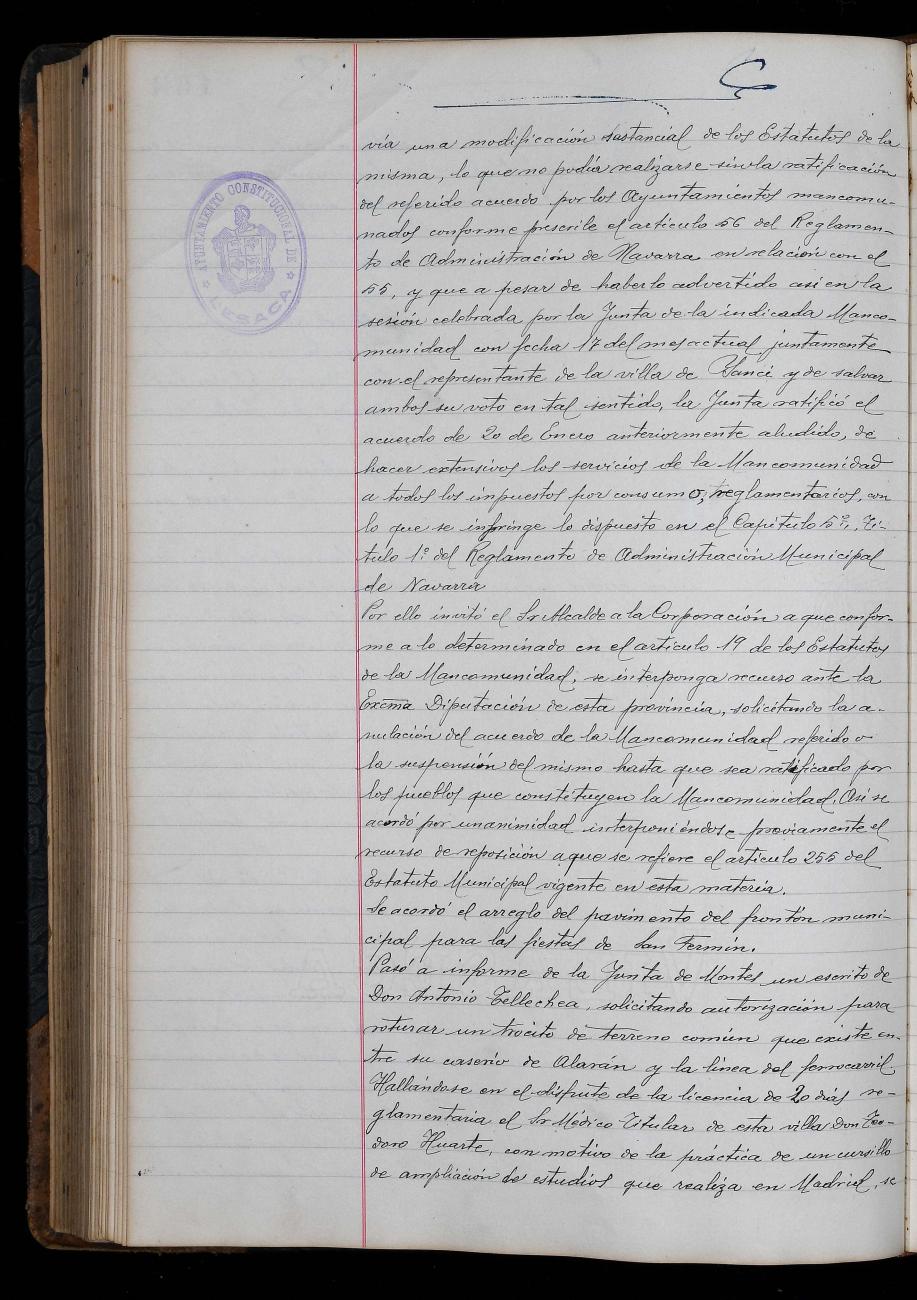 AYUNTAMIENTO CONSTITUCIONAL DE
* LESACA *
vía una modificación sustancial de los Estatutos de la
misma, lo que no podía realizarse sin la ratificación
del referido acuerdo por los Ayuntamientos mancomu-
nados conforme prescribe el artículo 56 del Reglamen-
to de Administración de Navarra en relación con el
55, y que a pesar de haberlo advertido así en la
sesión celebrada por la Junta de la indicada Manco-
munidad con fecha 17 del mes actual juntamente
con el representante de la villa de Yanci y de salvar
ambos su voto en tal sentido, la Junta ratificó el
acuerdo de 20 de Enero anteriormente aludido, de
hacer extensivos los servicios de la Mancomunidad
a todos los impuestos por consumo, reglamentarios, con
lo que se infringe lo dispuesto en el Capítulo 5º, Tí-
tulo 1º del Reglamento de Administración Municipal
de Navarra
Por ello invitó el Sr Alcalde a la Corporación a que confor-
me a lo determinado en el artículo 19 de los Estatutos
de la Mancomunidad, se interponga recurso ante la
Excma Diputación de esta provincia, solicitando la a-
nulación del acuerdo de la Mancomunidad referido o
la suspensión del mismo hasta que sea ratificado por
los pueblos que constituyen la Mancomunidad. Así se
acordó por unanimidad interponiéndose previamente el
recurso de reposición a que se refiere el artículo 255 del
Estatuto Municipal vigente en esta materia.
Se acordó el arreglo del pavimento del frontón muni-
cipal para las fiestas de San Fermín.
Pasó a informe de la Junta de Montes un escrito de
Don Antonio Tellechea, solicitando autorización para
roturar un trocito de terreno común que existe en-
tre su caserío de Alarán y la línea del ferrocarril.
Hallándose en el disfrute de la licencia de 20 días re-
glamentaria el Sr Médico Titular de esta villa Don Teo-
doro Huarte, con motivo de la práctica de un cursillo
de ampliación de estudios que realiza en Madrid, se